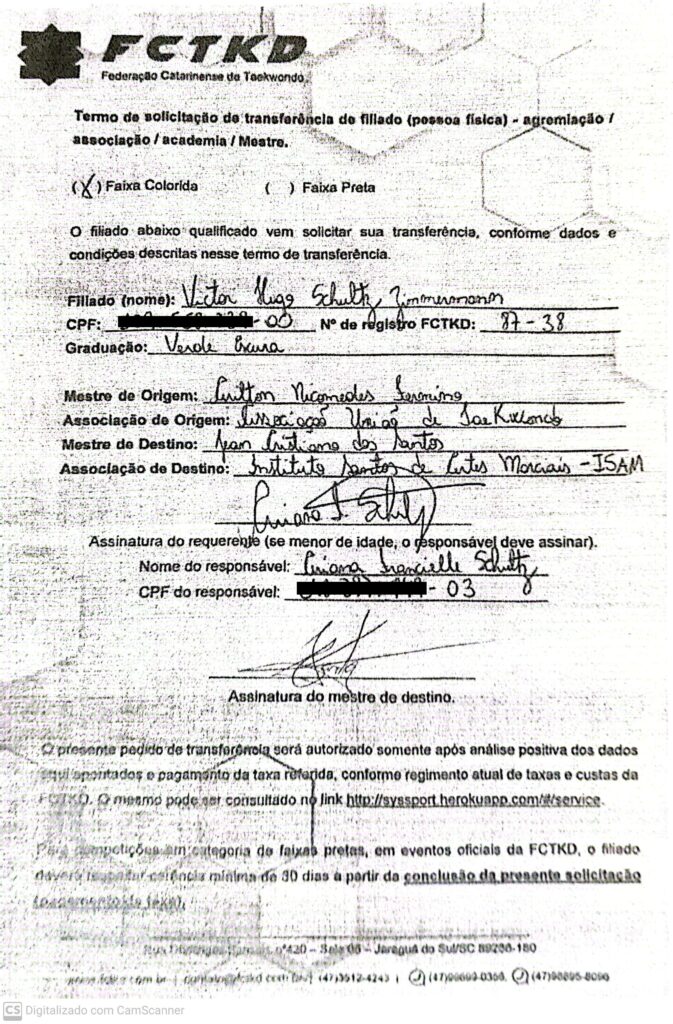 FCTKD
Federação Catarinense de Taekwondo
Termo de solicitação de transferência de filiado (pessoa física) - agremiação /
associação / academia / Mestre.
(X) Faixa Colorida ( ) Faixa Preta
O filiado abaixo qualificado vem solicitar sua transferência, conforme dados e
condições descritas nesse termo de transferência.
Filiado (nome): Victor Hugo Schultz Zimmermann
CPF: -00 Nº de registro FCTKD: 87-38
Graduação: Verde Escura
Mestre de Origem: Nicomedes
Associação de Origem: Associação União de Taekwondo
Mestre de Destino: Jean Cristiano dos Santos
Associação de Destino: Instituto Santos de Artes Marciais - ISAM
Assinatura do requerente (se menor de idade, o responsável deve assinar).
Nome do responsável: Francielle Schultz
CPF do responsável: - 03
Assinatura do mestre de destino.
O presente pedido de transferência será autorizado somente após análise positiva dos dados
aqui apontados e pagamento da taxa referida, conforme regimento atual de taxas e custas da
FCTKD. O mesmo pode ser consultado no link http://syssport.herokuapp.com/#/service.
Para competições em categoria de faixas pretas, em eventos oficiais da FCTKD, o filiado
deverá respeitar carência mínima de 30 dias a partir da conclusão da presente solicitação
(pagamento da taxa).
nº420 - Sala 06 - Jaraguá do Sul/SC 89256-180
(47)3512-4243 |
CS Digitalizado com CamScanner